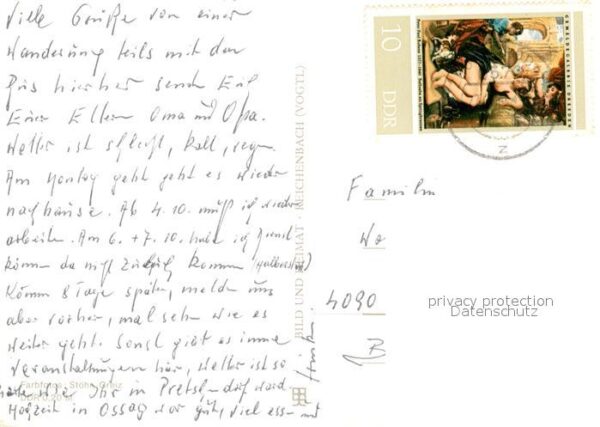 Viele Grüße von einer
Wanderung teils mit dem
Bus hierher senden Euch
Eure Eltern Oma und Opa.
Wetter ist schlecht, kalt, regn.
Am Montag geht geht es wieder
nachhause. Ab 4.10. muß ich wieder
arbeiten. Am 6. + 7.10. habe ich Dienst
können da nicht kommen (Halberstadt)
Komm 8 Tage später, melden uns
aber vorher, mal sehn wie es
weiter geht. Sonst gibt es immer
Veranstaltungen hier, Wetter ist so
Ihr in
Hochzeit in Ossag war gut, viel
Farbfotos: Stöhr, Greiz
DDR 0,20 M
BILD UND HEIMAT · REICHENBACH (VOGTL)
10
DDR
Peter Paul Rubens
GEMÄLDEGALERIE DRESDEN
Familie
Wo
4090
privacy protection
Datenschutz